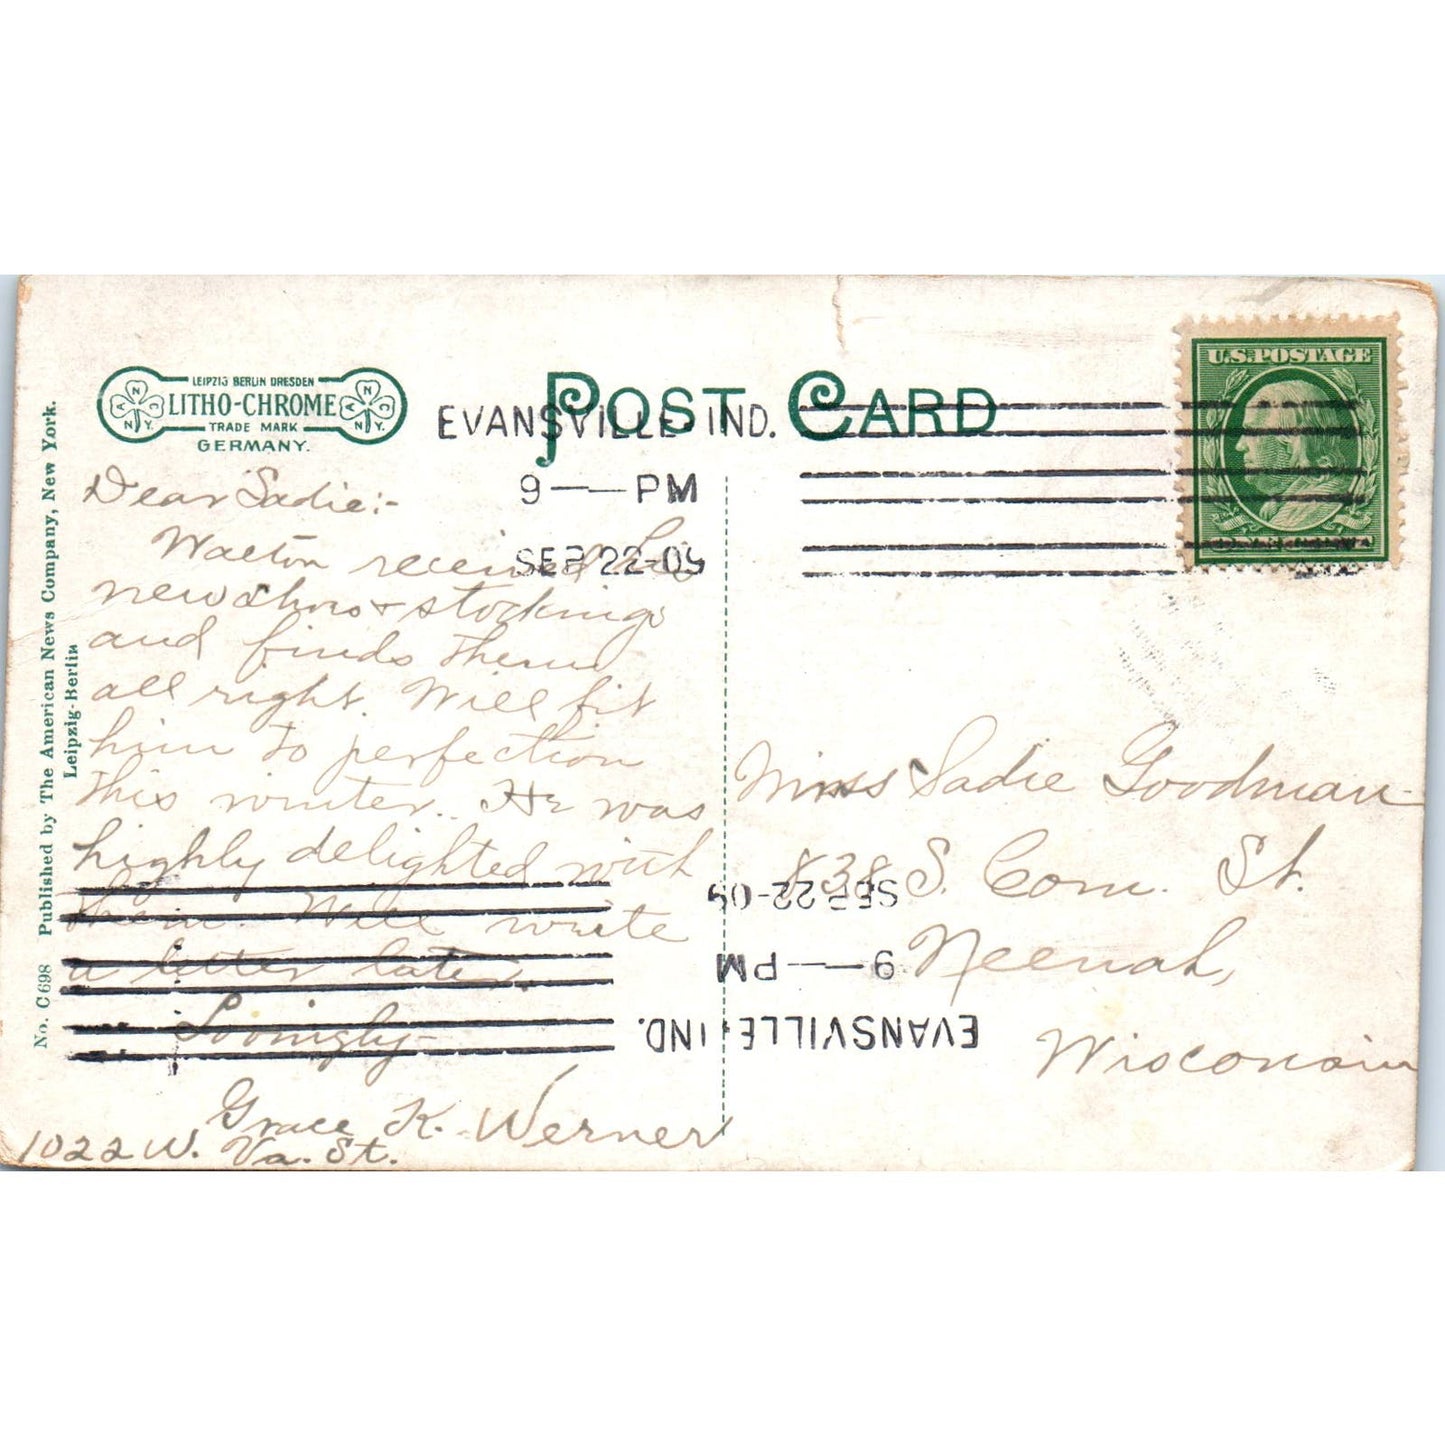 POST CARD
U.S. POSTAGE
LEIPZIG BERLIN DRESDEN
LITHO-CHROME
TRADE MARK
GERMANY.
A N C N.Y.
A N C N.Y.
EVANSVILLE, IND.
9 — PM
SEP 22-09
No. C698 Published by The American News Company, New York.
Leipzig-Berlin
Dear Sadie:-
Walton received his
new shoes & stockings
and finds them
all right. Will fit
him to perfection
this winter. He was
highly delighted with
them. Will write
a letter later.
Lovingly-
Grace K. Werner
1022 W. Va. St.
Miss Sadie Goodman
838 S. Com. St.
Neenah,
Wisconsin
SEP 22-09
9 — PM
EVANSVILLE, IND.